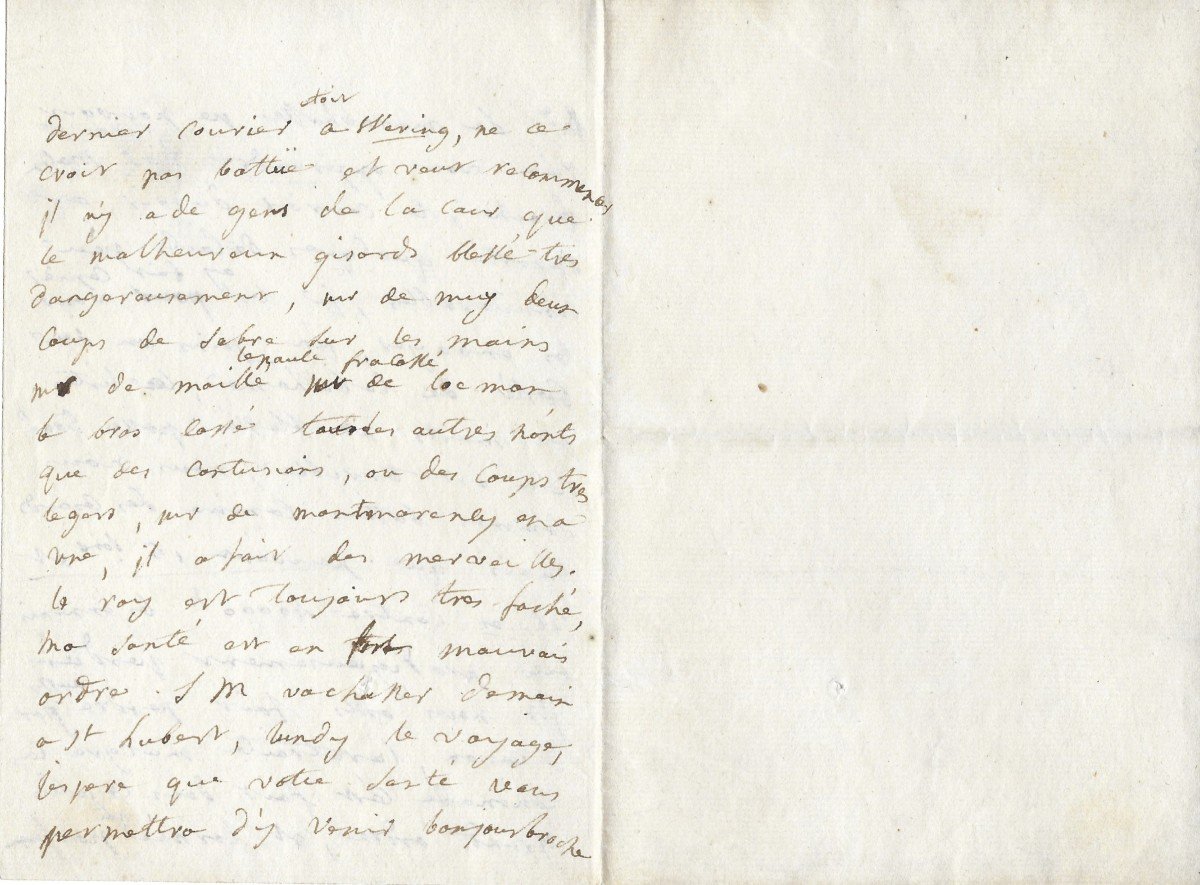 étoit
dernier courier a Wering, ne ce
croit pas battüe et veut recommencer
il ny a de gens de la cour que
le malheureux gisords blessé tres
dangereusement, mr de muy deux
coups de sabre sur les mains
mr de maillé lepaule fracassé mr de locmar
le bras cassé tous les autres nonts
que des contusions, ou des coups tres
legers, mr de montmorency en a
une, il a fait des merveilles.
le roy est toujours tres faché,
ma santé est en fort mauvais
ordre. S M va chasser demain
a st hubert, lundy le voyage,
jespere que votre santé vous
permettra d'y venir bonjour broche